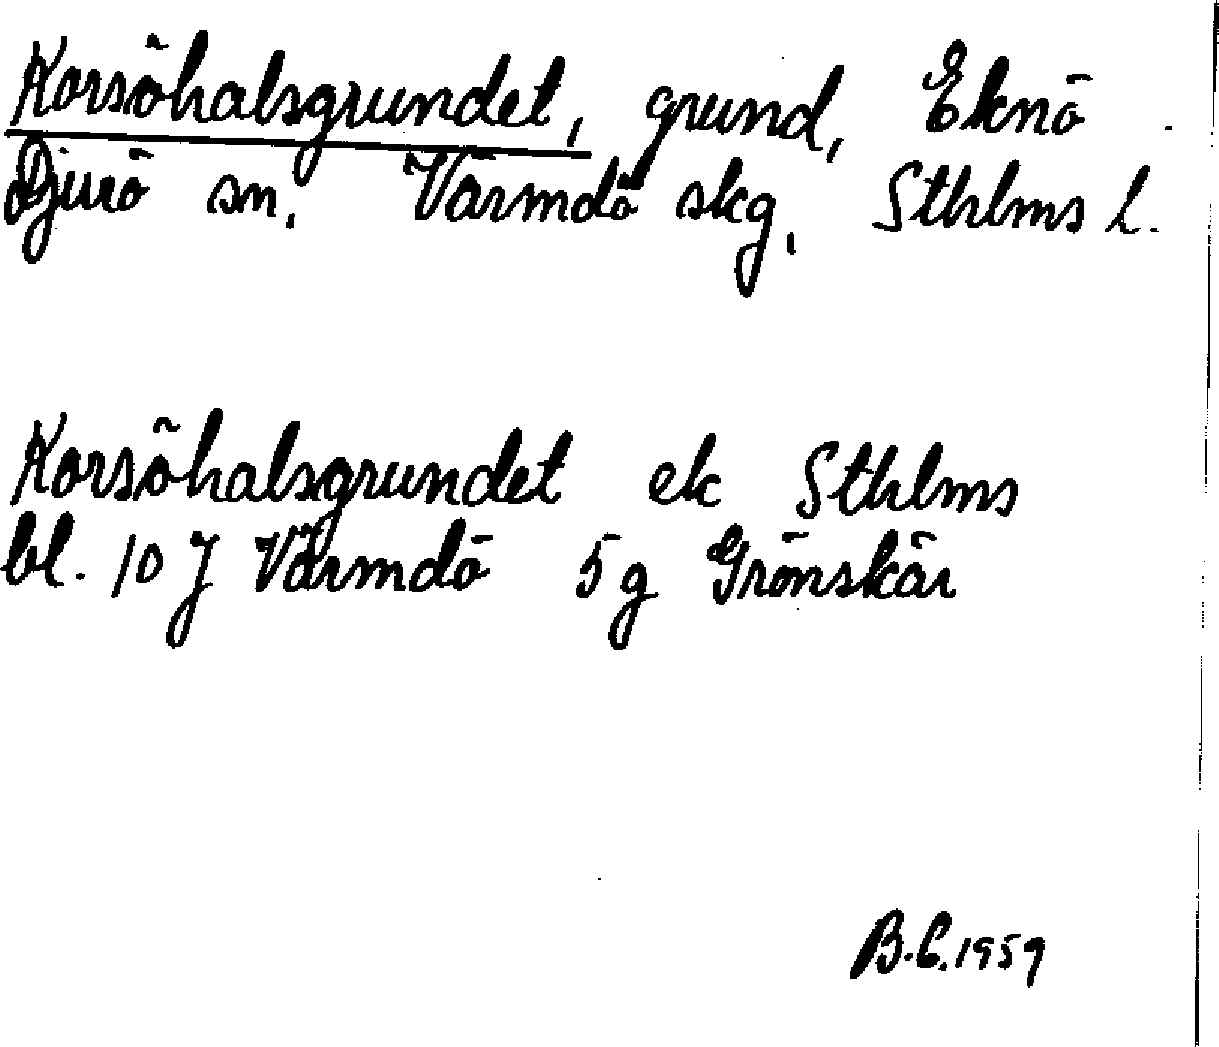 Korsöhalsgrundet, grund, Eknö
Djurö sn. Värmdö skg, Sthlms L.
Korsöhalsgrundet ek Sthlms
bl. 10 J Värmdö 5g Grönskär
B.C. 1959